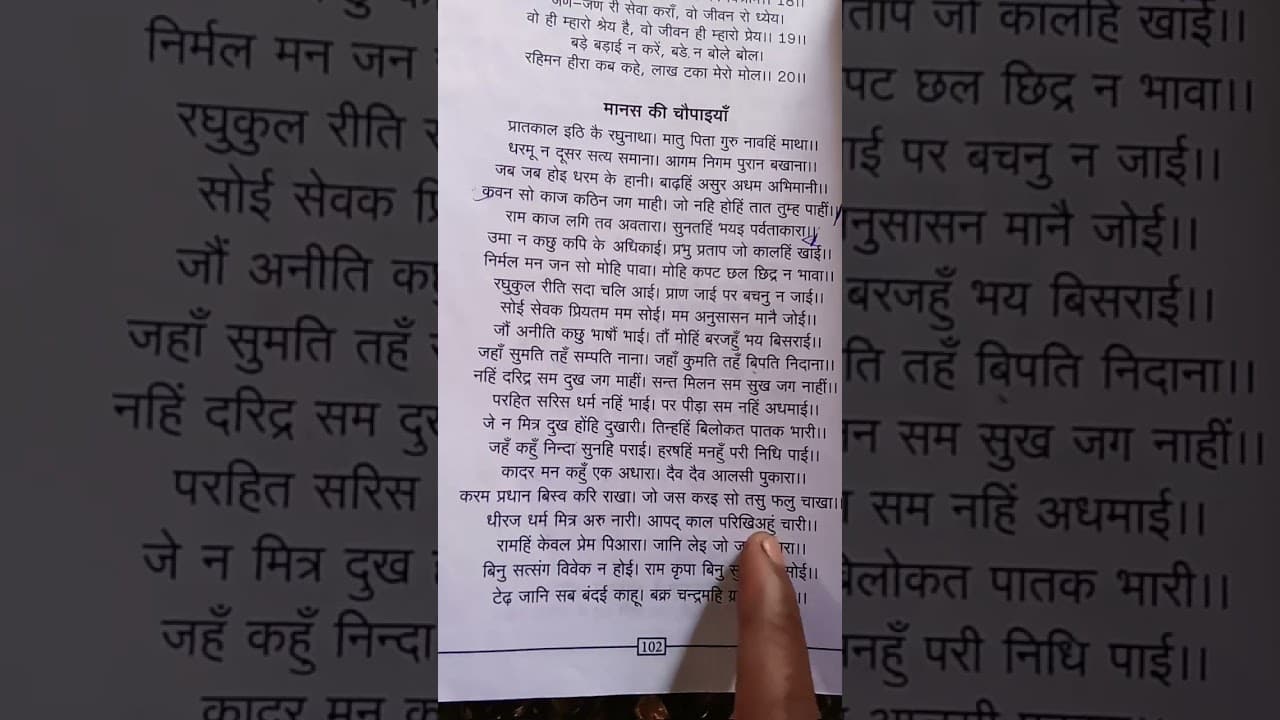 जण-जण री सेवा कराँ, वो जीवन रो ध्येय।
वो ही म्हारो श्रेय है, वो जीवन ही म्हारो प्रेय।। 19।।
बड़े बड़ाई न करें, बडे न बोले बोल।
रहिमन हीरा कब कहे, लाख टका मेरो मोल।। 20।।
मानस की चौपाइयाँ
प्रातकाल इठि कै रघुनाथा। मातु पिता गुरु नावहिं माथा।।
धरमू न दूसर सत्य समाना। आगम निगम पुरान बखाना।।
जब जब होइ धरम के हानी। बाढ़हिं असुर अधम अभिमानी।।
कवन सो काज कठिन जग माही। जो नहि होहिं तात तुम्ह पाहीं।।
राम काज लगि तव अवतारा। सुनतहिं भयइ पर्वताकारा।।
उमा न कछु कपि के अधिकाई। प्रभु प्रताप जो कालहिं खाई।।
निर्मल मन जन सो मोहि पावा। मोहि कपट छल छिद्र न भावा।।
रघुकुल रीति सदा चलि आई। प्राण जाई पर बचनु न जाई।।
सोई सेवक प्रियतम मम सोई। मम अनुसासन मानै जोई।।
जौं अनीति कछु भाषौं भाई। तौं मोहिं बरजहुँ भय बिसराई।।
जहाँ सुमति तहँ सम्पति नाना। जहाँ कुमति तहँ बिपति निदाना।।
नहिं दरिद्र सम दुख जग माहीं। सन्त मिलन सम सुख जग नाहीं।।
परहित सरिस धर्म नहिं भाई। पर पीड़ा सम नहिं अधमाई।।
जे न मित्र दुख होंहि दुखारी। तिन्हहिं बिलोकत पातक भारी।।
जहँ कहुँ निन्दा सुनहि पराई। हरषहिं मनहुँ परी निधि पाई।।
कादर मन कहुँ एक अधारा। दैव दैव आलसी पुकारा।।
करम प्रधान बिस्व करि राखा। जो जस करइ सो तसु फलु चाखा।।
धीरज धर्म मित्र अरु नारी। आपद् काल परिखिअहुं चारी।।
रामहिं केवल प्रेम पिआरा। जानि लेइ जो
बिनु सत्संग विवेक न होई। राम कृपा बिनु सोई।।
टेढ़ जानि सब बंदई काहू। बक्र चन्द्रमहि
102